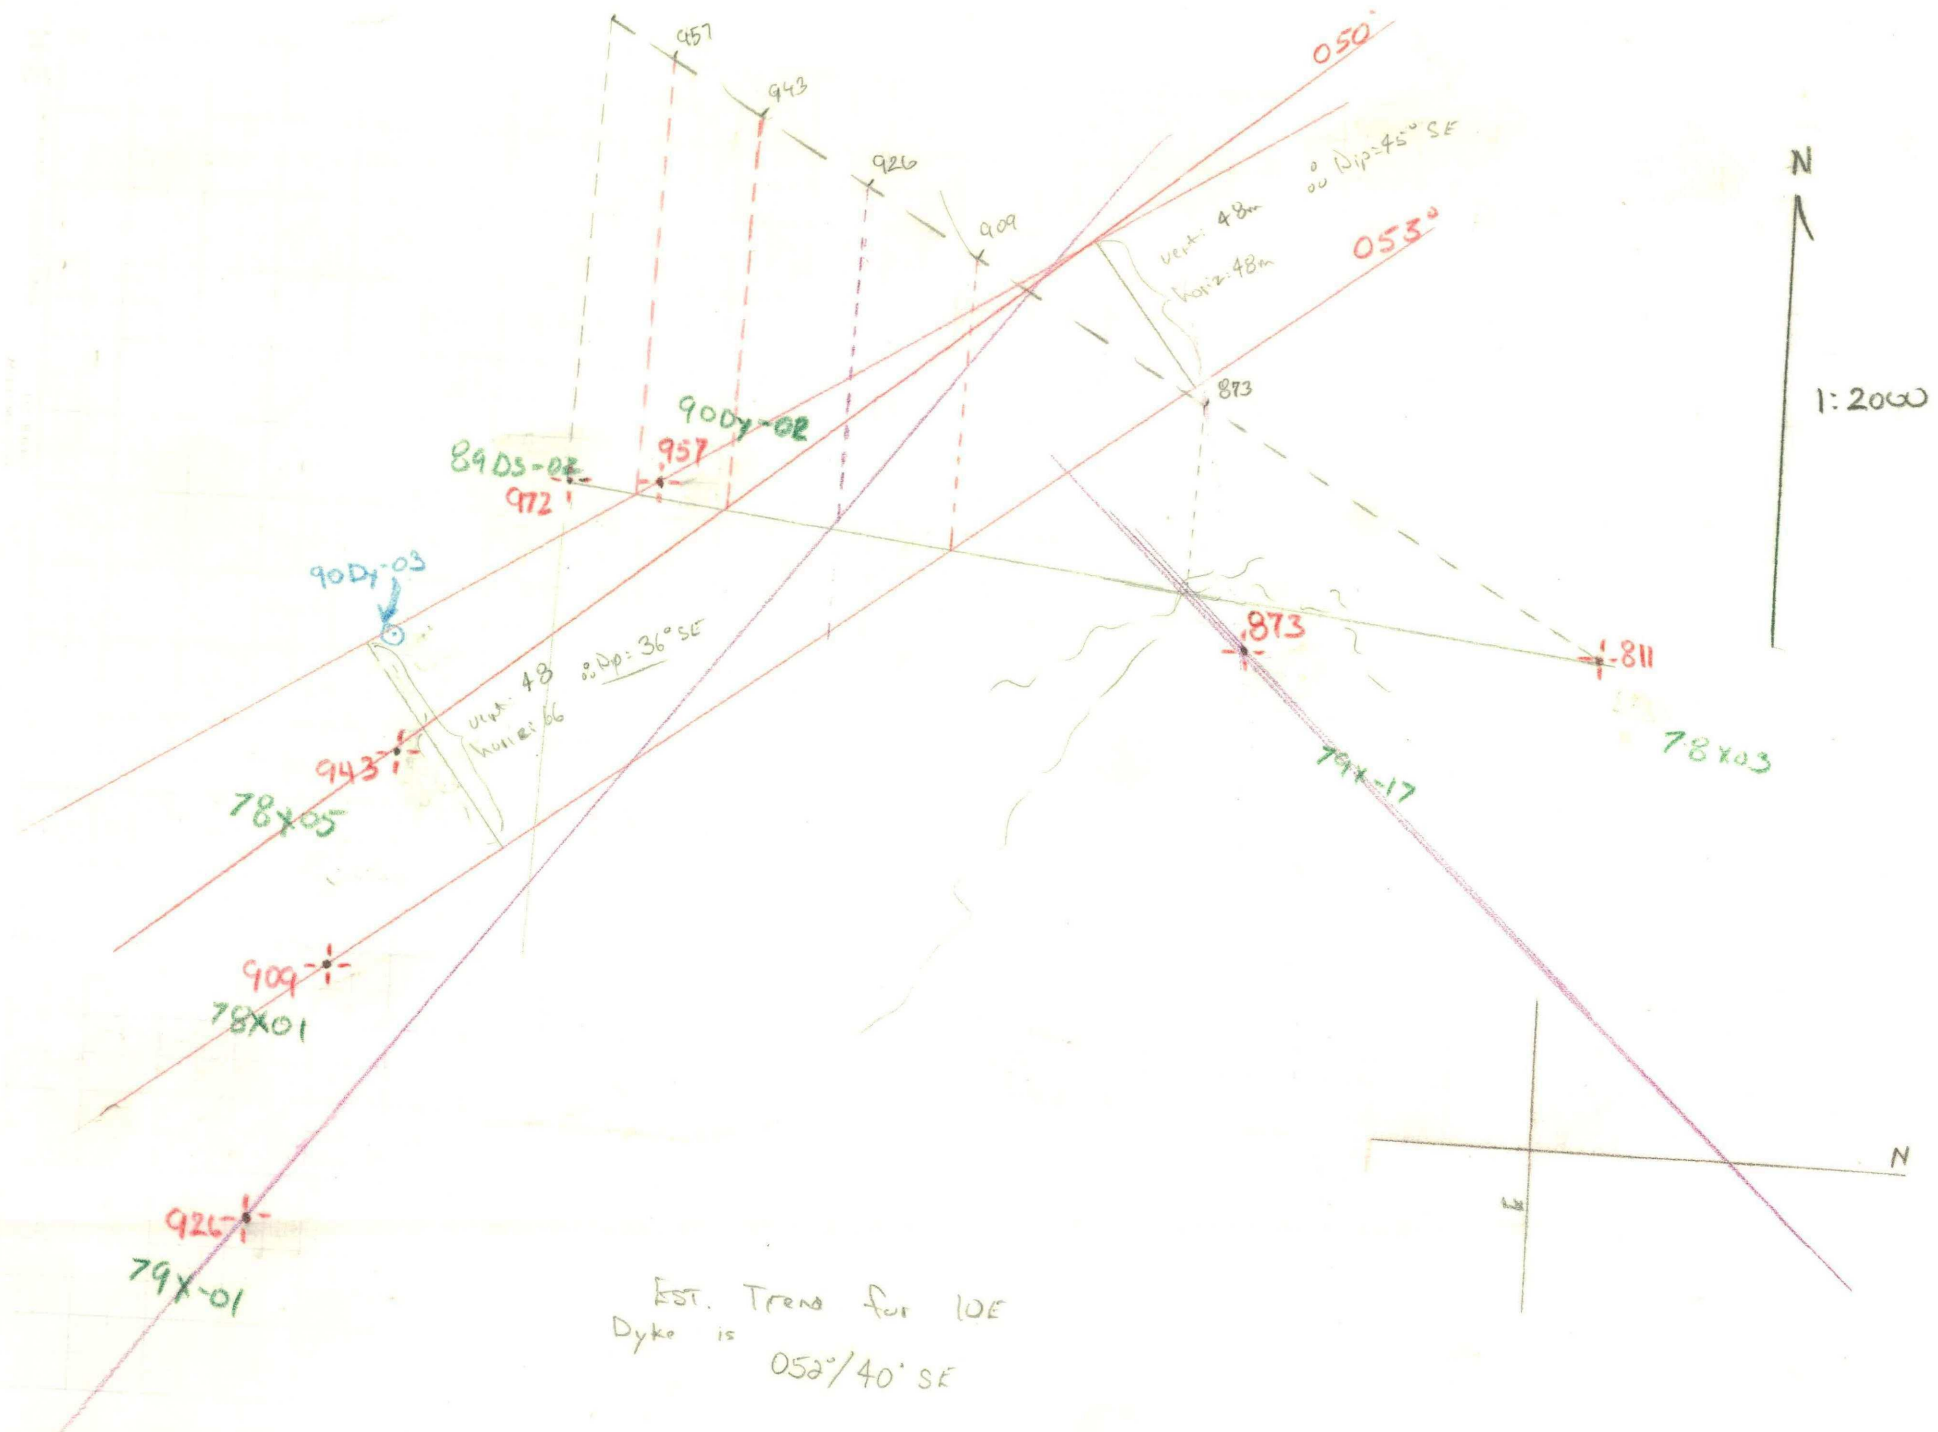 957
943
926
909
050°
∴ Dip=45° SE
053°
vert: 48m
horiz: 48m
N
1:2000
873
90Dy-02
957
89DS-02
972
90Dy-03
vert: 48
horiz: 66
∴ Dip= 36° SE
873
811
78X03
79X-17
943
78X05
909
78X01
926
79X-01
N
EST. Trend for 10E
Dyke is
052°/40° SE